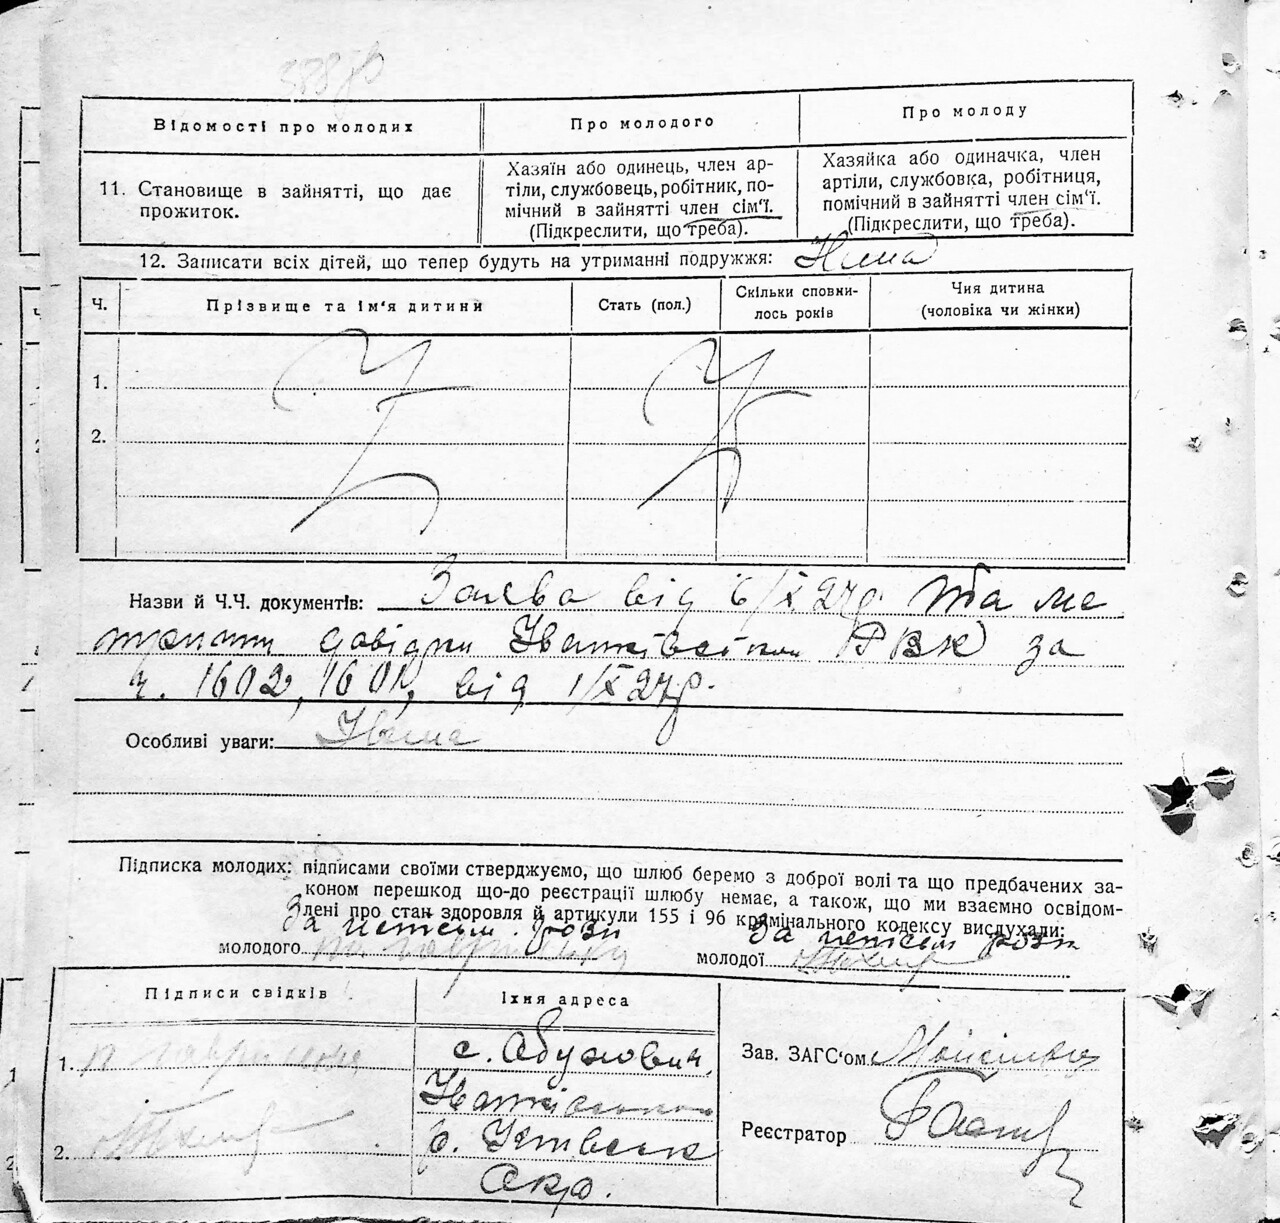 Відомості про молодих
Про молодого
Про молоду
11. Становище в зайнятті, що дає
прожиток.
Хазяїн або одинець, член ар-
тіли, службовець, робітник, по-
мічний в зайнятті член сім'ї.
(Підкреслити, що треба).
Хазяйка або одиначка, член
артіли, службовка, робітниця,
помічний в зайнятті член сім'ї.
(Підкреслити, що треба).
12. Записати всіх дітей, що тепер будуть на утриманні подружжя: Нема
Ч.
Прізвище та ім'я дитини
Стать (пол.)
Скільки сповни-
лось років
Чия дитина
(чоловіка чи жінки)
1.
2.
Назви й Ч.Ч. документів: Заява від 6/X 27р. та ме
трични довідки Іванківської РВК за
ч. 1602, 1601, від 1/X 27р.
Особливі уваги:
Підписка молодих: підписами своїми стверджуємо, що шлюб беремо з доброї волі та що предбачених за-
коном перешкод що-до реєстрації шлюбу немає, а також, що ми взаємно освідом-
лені про стан здоровля й артикули 155 і 96 кримінального кодексу вислухали:
За неписьм. розп
За неписьм розп
молодого
молодої
Підписи свідків
Їхня адреса
1.
с. Обуховичі,
Іванківського
2.
р. Київськ
Окр.
Зав. ЗАГС'ом
Реєстратор